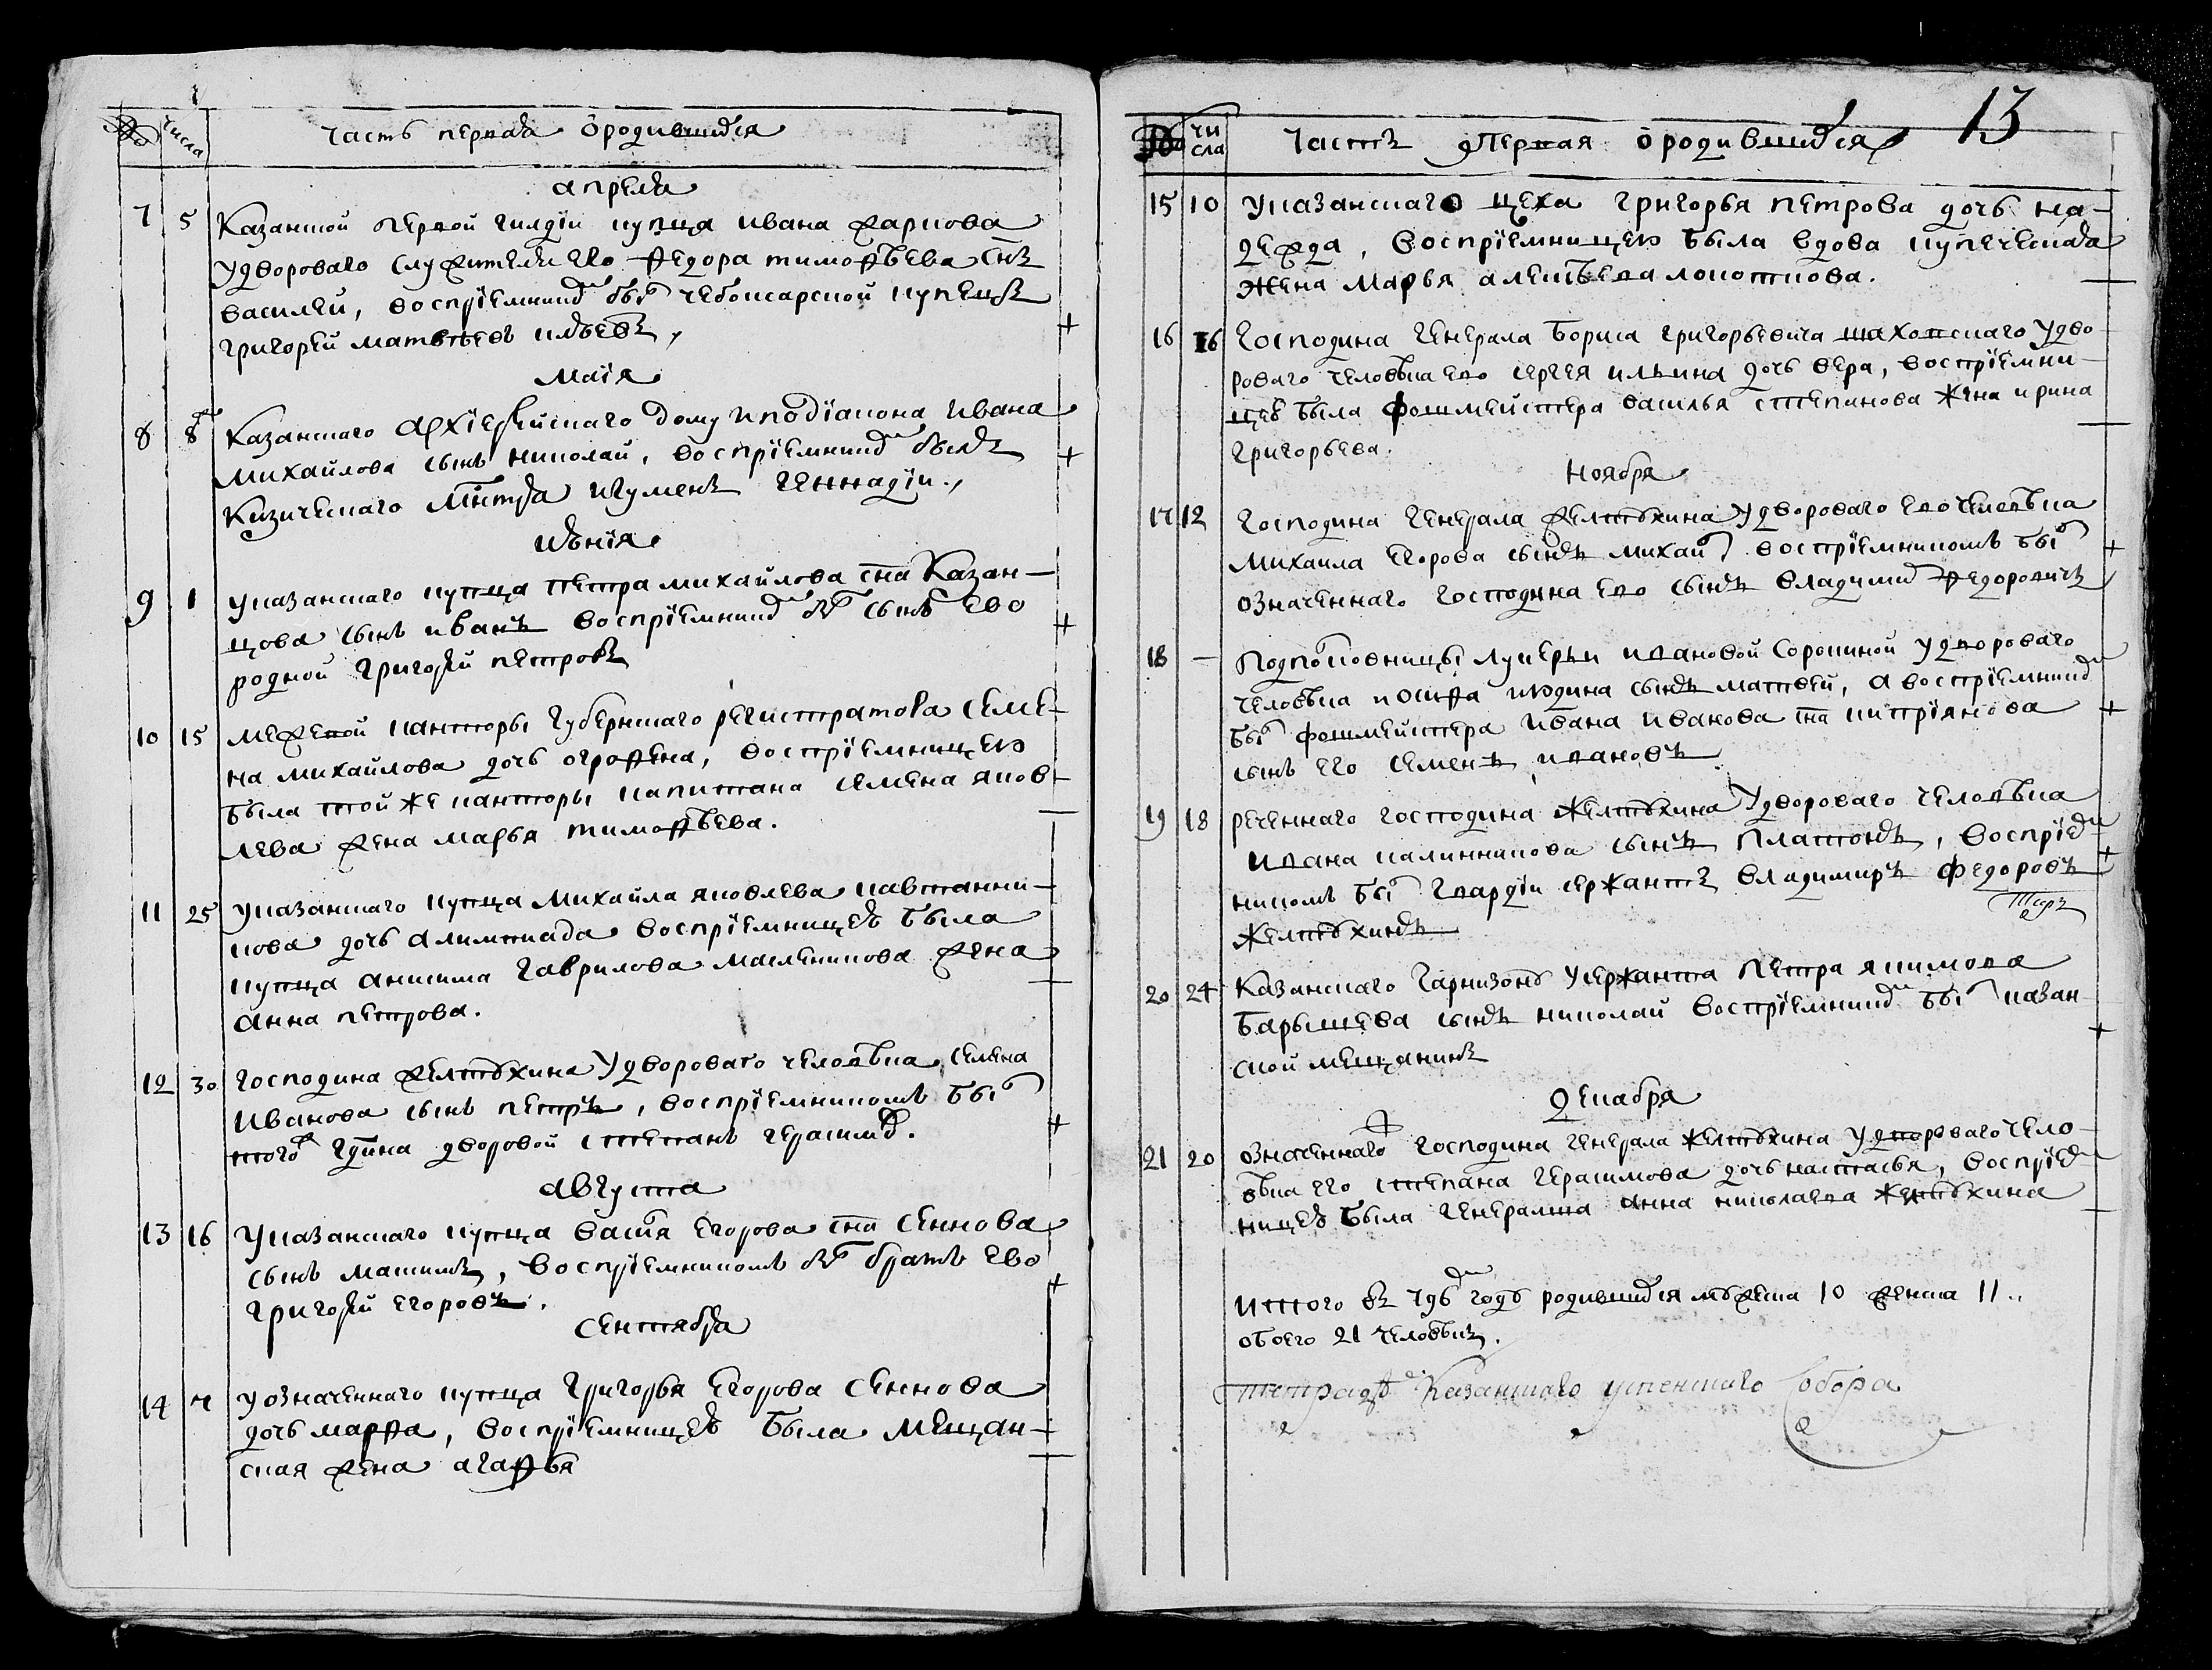 № числа
часть первая о родившихся
апреля
7 5 Казанской первой гилдіи купца ивана жаркова
у двороваго служителя его федора тимофѣева снъ
василей, воспріемником был чебоксарской купецъ
григорей матвѣевъ ильевъ,
маія
8 8 Казанскаго архіерейскаго дому иподіакона ивана
михайлова сынъ николай, воспріемником былъ
Кизическаго мнтря игуменъ геннадіи.,
июнія
9 1 у казанскаго купца петра михайлова сна Казан-
цова сынъ иванъ воспріемником был сынъ ево
родной григорей петровъ
10 15 межевой канторы губернскаго регистратора семе-
на михайлова дочь огрофена, воспріемницею
была той же канторы капитана семена яков-
лева жена марья тимофѣева.
11 25 у казанскаго купца михаила яковлева кавтанни-
кова дочь алимпиада воспріемницею была
купца анисима гаврилова масленикова жена
анна петрова.
12 30 господина желтухина у двороваго человѣка семена
иванова сынъ петръ, воспріемникомъ был
тогож гдина дворовой степанъ герасимов.
августа
13 16 у казанскаго купца василя егорова сна сеннова
сынъ максимъ, воспріемникомъ был братъ ево
григорей егоровъ.
сентября
14 7 у означеннаго купца григорья егорова сеннова
дочь марфа, воспріемницею была мещан-
ская жена агафья
13
№ чи
сла
часть первая о родившихся
15 10 у казанскаго цеха григорья петрова дочь на-
дежда, воспріемницею была вдова купеческая
жена марья алексѣева локоткова.
16 16 господина генерала бориса григорьевича шаховскаго у дво
роваго человѣка его сергея ильина дочь вера, воспріемни-
цею была фошмейстера василья степанова жена ирина
григорьева.
ноября
17 12 господина генерала желтухина у двороваго его человѣка
михаила егорова сынъ михайл воспріемникомъ был
означеннаго господина его сынъ владимир федоровичъ
18 — подполковницы лукерьи ивановой сорокиной у двороваго
человѣка иосифа июдина сынъ матвей, а воспріемником
был фошмейстера ивана иванова сна кипріянова
сынъ его семенъ ивановъ
19 18 реченнаго господина желтухина у двороваго человѣка
ивана калинникова сынъ платонъ, воспріем
никомъ был гвардіи сержантъ владимиръ федоровъ
желтухинъ
20 24 казанскаго гарнизону у сержанта петра якимова
барышева сынъ николай воспріемником был казан
ской мещанинъ
декабря
21 20 означеннаго господина генерала желтухина у двороваго чело-
вѣка его степана герасимова дочь настасья, воспріем
ницею была генералша анна николаева желтухина
итого въ 796м году родившихся мужеска 10 женска 11..
обоего 21 человѣкъ.
тетрадь казанскаго успенскаго собора